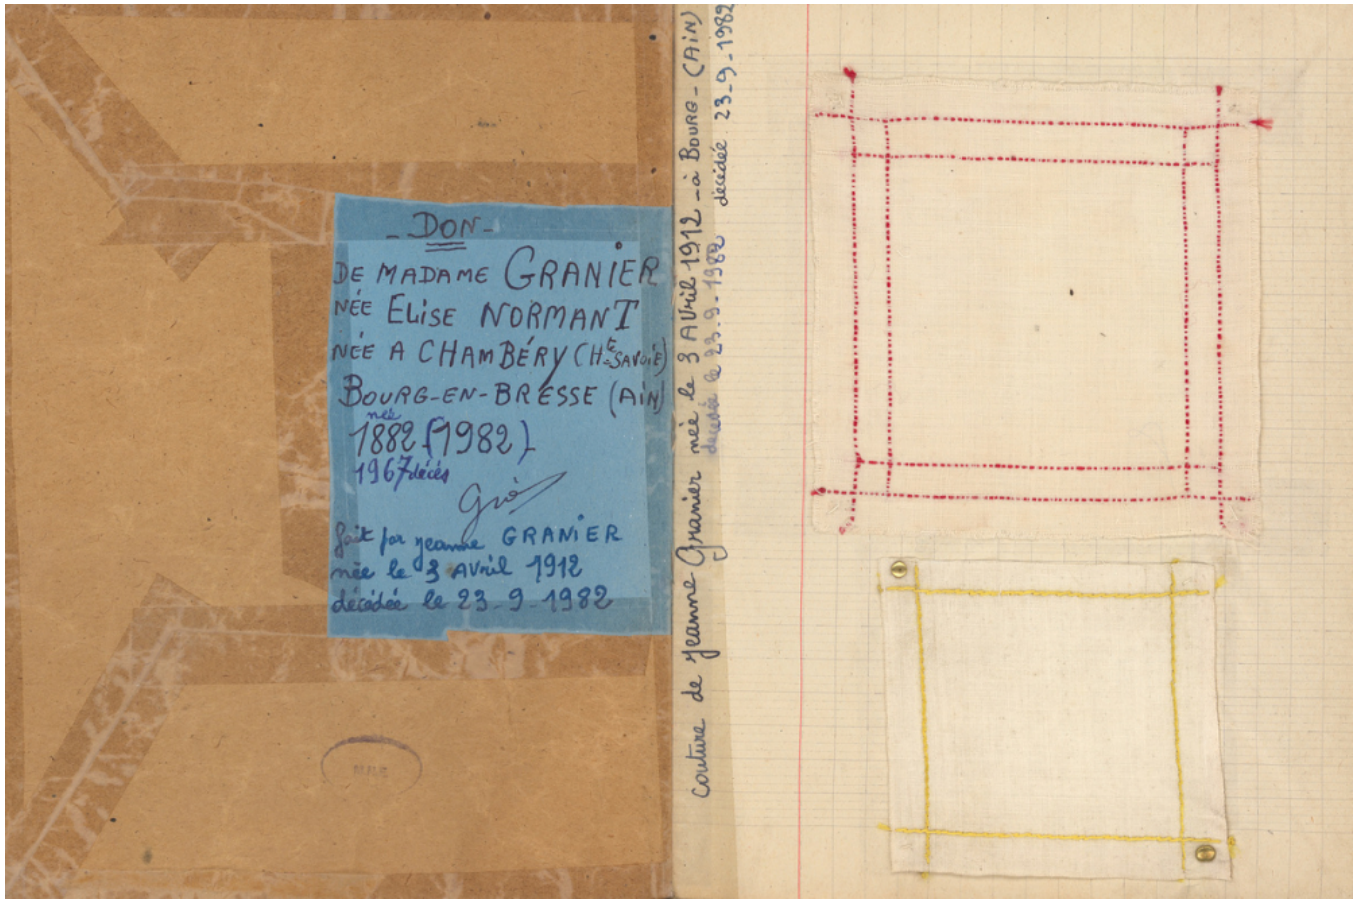 - DON -
DE MADAME GRANIER
NÉE ELISE NORMANT
NÉE A CHAMBÉRY (HTE-SAVOIE)
BOURG-EN-BRESSE (AIN)
née
1882 (1982)
1967 décès
fait par jeanne GRANIER
née le 3 AVril 1912
décédée le 23-9-1982
couture de jeanne Granier née le 3 AVril 1912 - à BOURG - (AiN)
decédée le 23.9.1982 décédée 23-9-1982